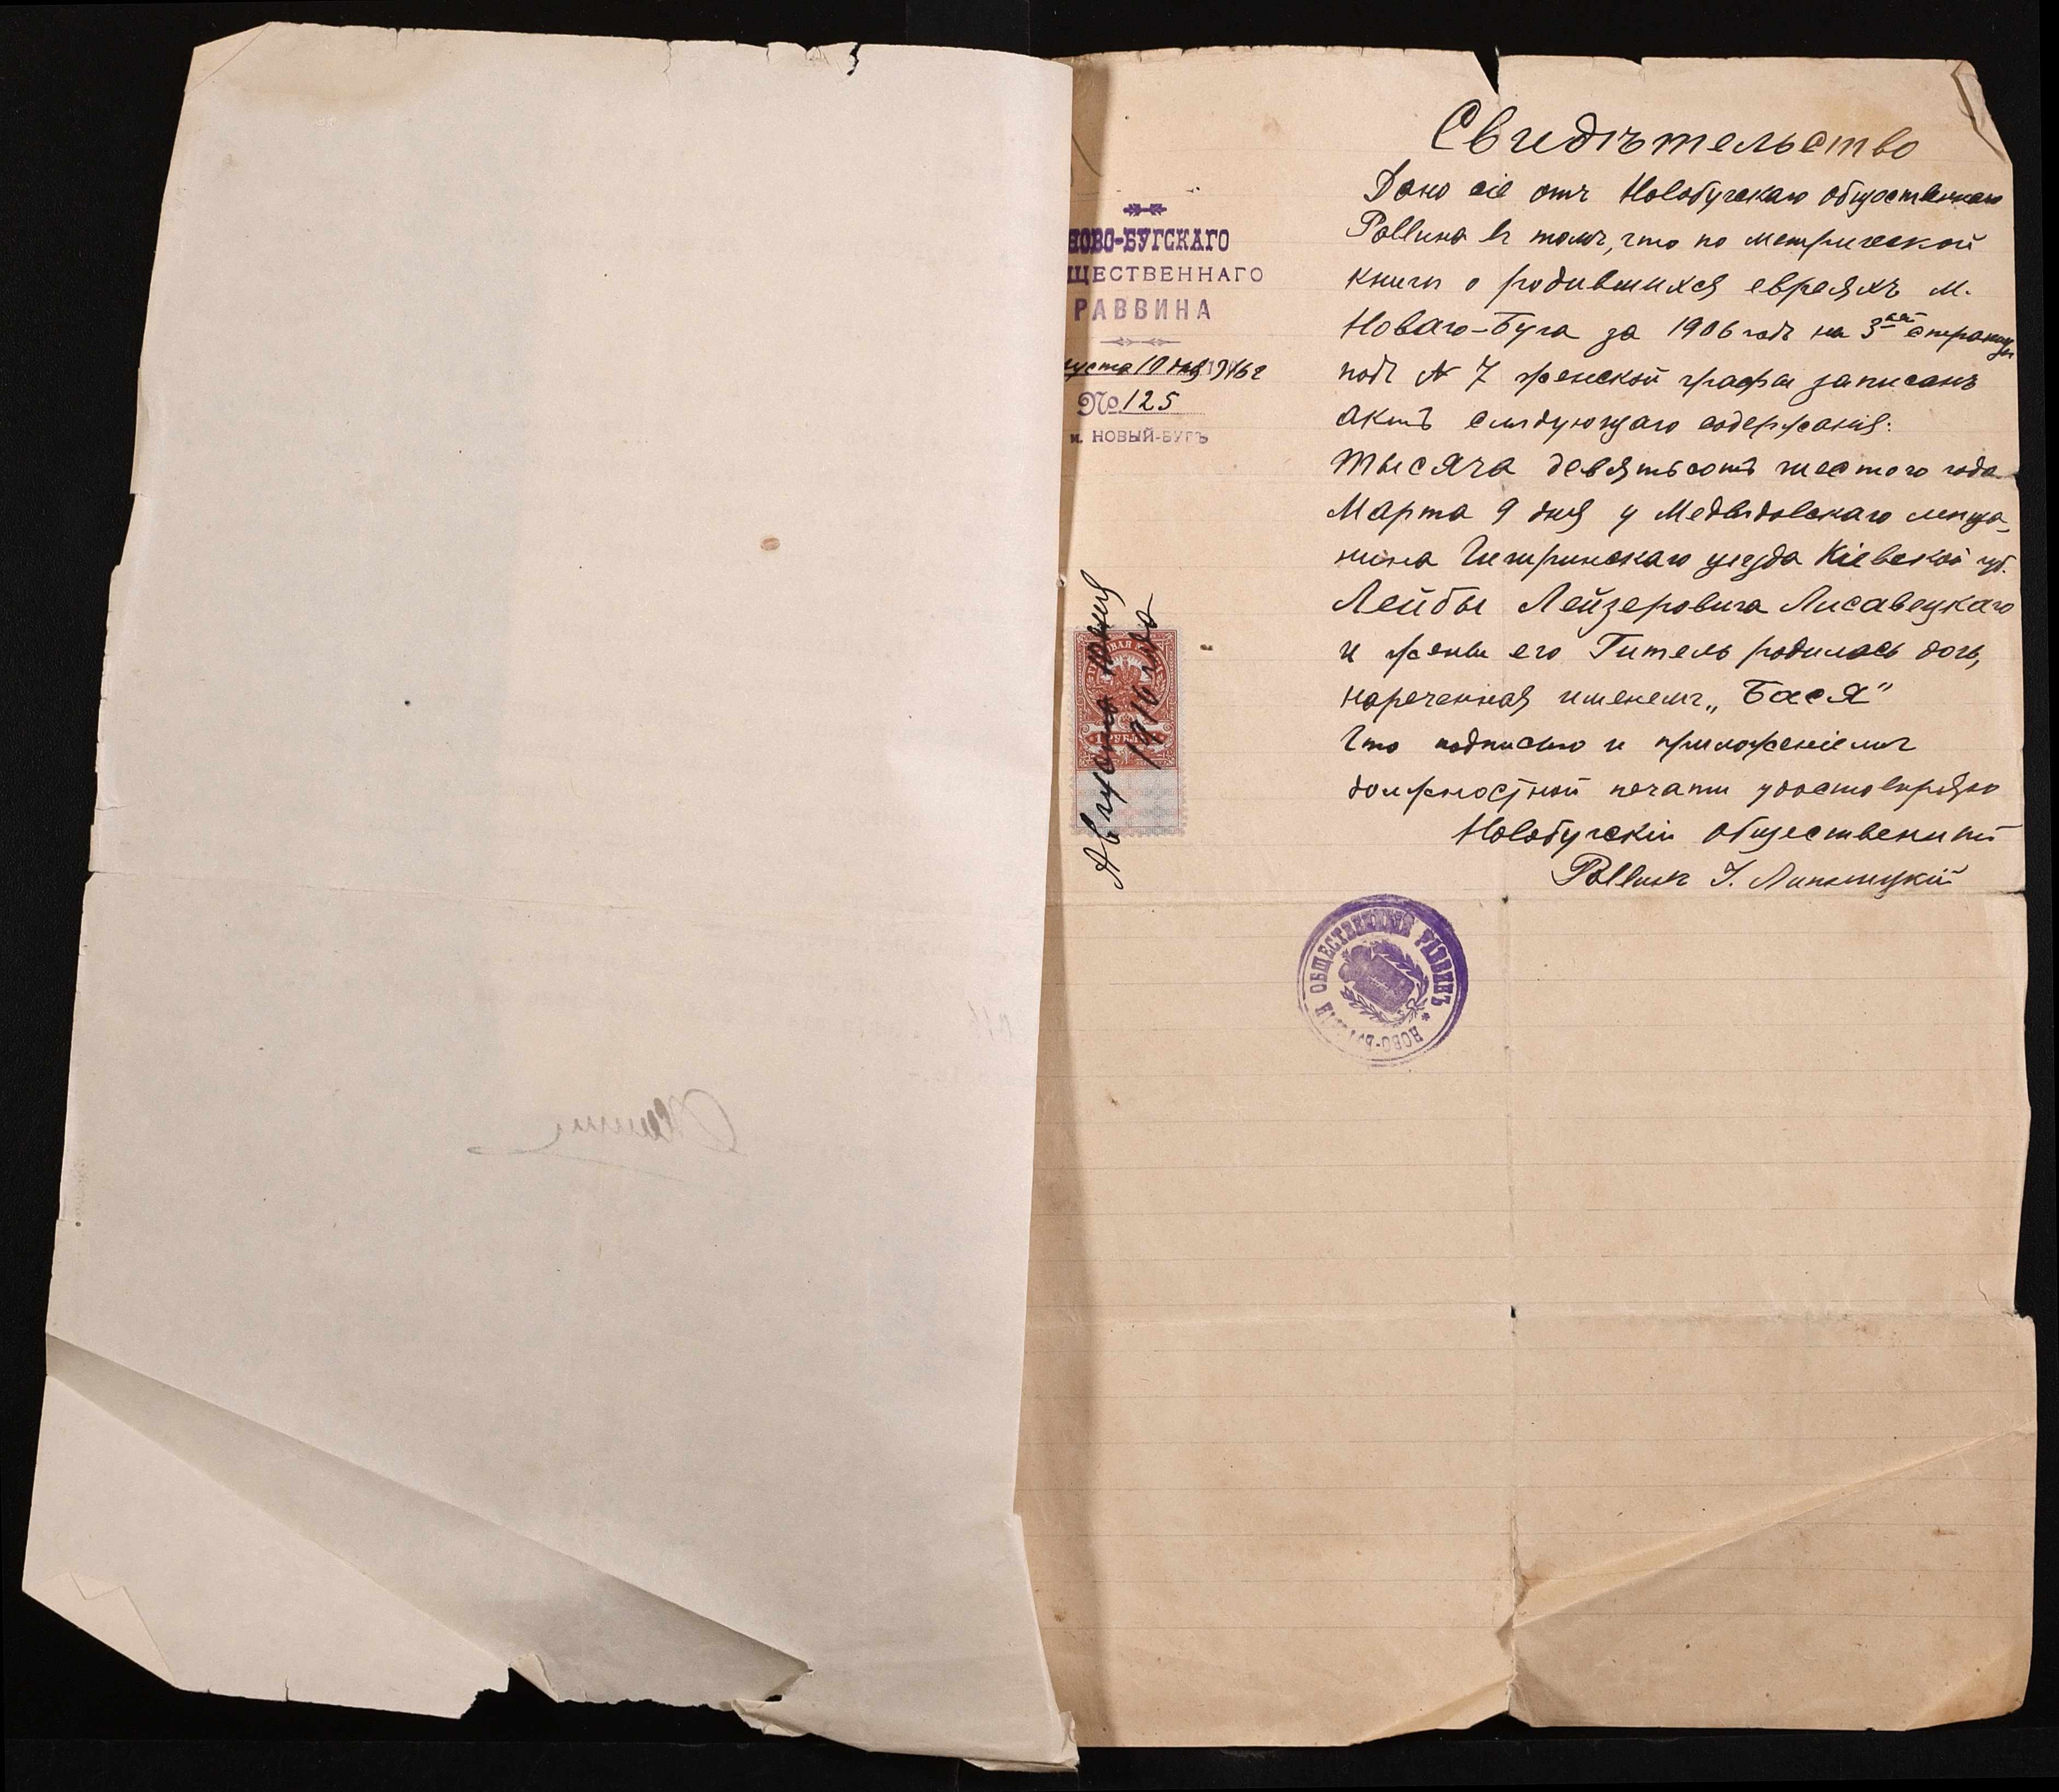 НОВО-БУГСКАГО
ЩЕСТВЕННАГО
РАВВИНА
густа 10 дня 1916 г
№ 125
м. НОВЫЙ-БУГЪ
Августа 10 дня
1916 года
1 РУБЛЬ
Свидѣтельство
Дано сіе отъ Новобугскаго общественнаго
Раввина въ томъ, что по метрической
книгѣ о родившихся евреяхъ м.
Новаго-Буга за 1906 годъ на 3ей страницѣ
подъ № 7 женской графы записанъ
актъ слѣдующаго содержанія:
Тысяча девятьсотъ шестого года
Марта 9 дня у Медвѣдовскаго мѣща-
нина Чигиринскаго уѣзда Кіевской губ.
Лейбы Лейзеровича Лисавецкаго
и жены его Гитель родилась дочь,
нареченная именемъ „Бася"
Что подписью и приложеніемъ
должностной печати удостовѣряю
Новобугскій общественный
Раввинъ І. Липницкій
НОВО- ОБЩЕСТВЕННЫЙ РАВВИНЪ *